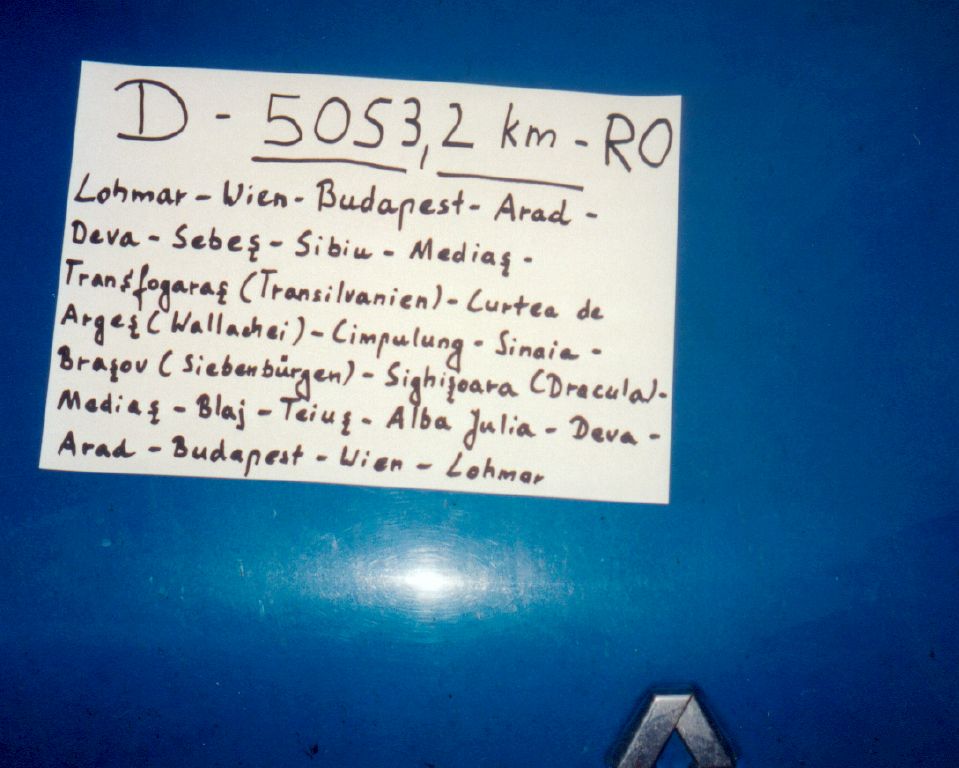 D - 5053,2 km - RO
Lohmar - Wien - Budapest - Arad -
Deva - Sebeş - Sibiu - Mediaş -
Transfogaraş (Transilvanien) - Curtea de
Argeş (Wallachei) - Cimpulung - Sinaia -
Braşov (Siebenbürgen) - Sighişoara (Dracula) -
Mediaş - Blaj - Teiuş - Alba Julia - Deva -
Arad - Budapest - Wien - Lohmar